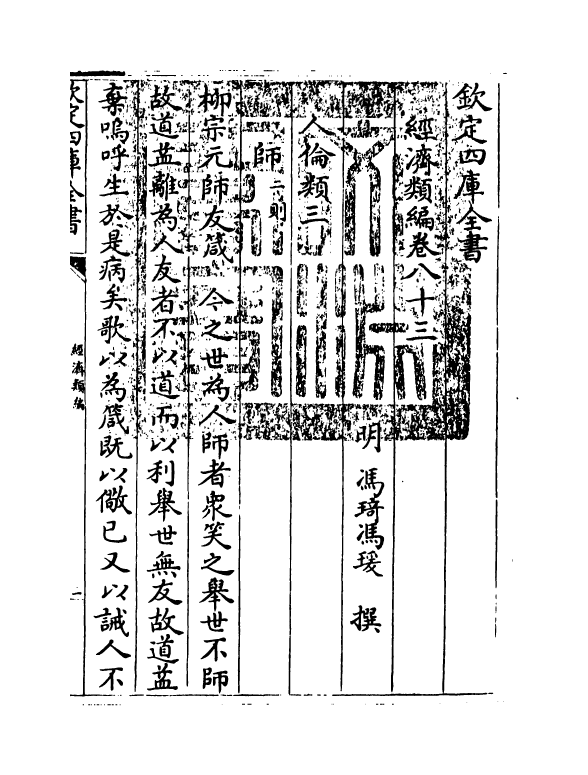 欽定四庫全書
經濟類編卷八十三
明 馮琦馮瑗 撰
人倫類三
師二則
柳宗元師友箴 今之世為人師者衆笑之舉世不師
故道益離為人友者不以道而以利舉世無友故道益
棄嗚呼生於是病矣歌以為箴既以儆已又以誡人不
欽定四庫全書
經濟類編
一